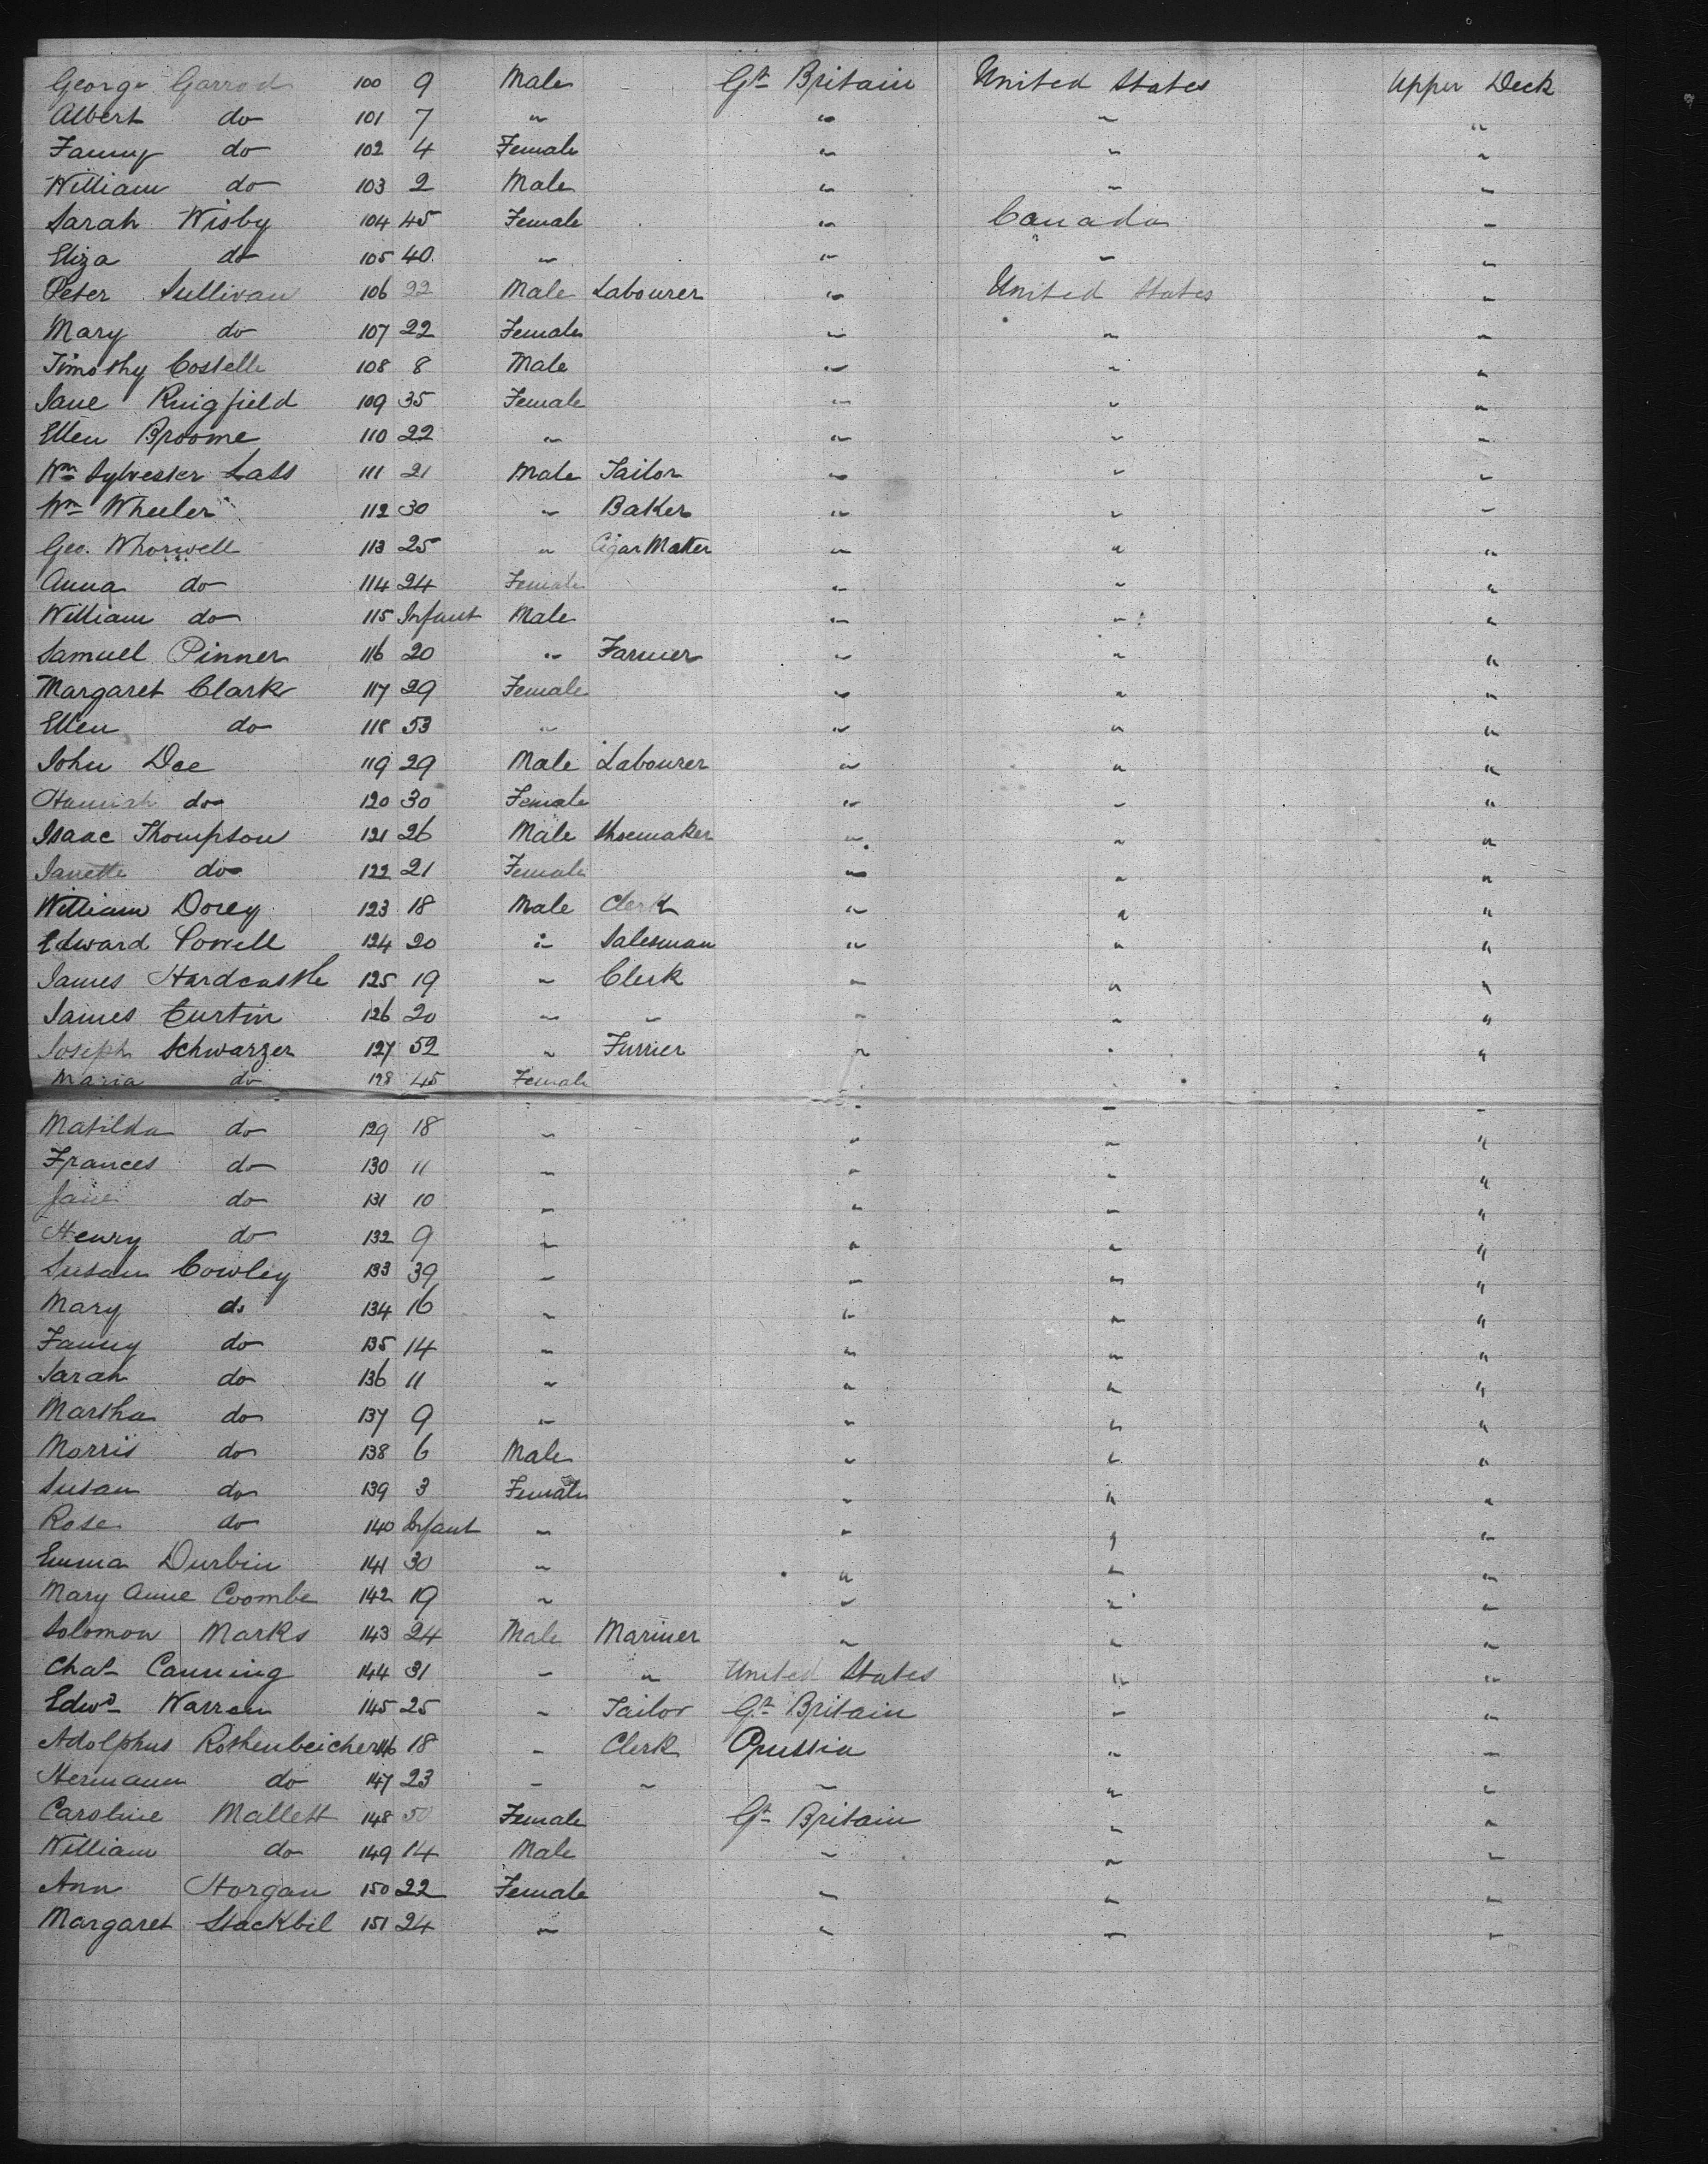 George Garrod 100 9 Male Gt Britain United States Upper Deck
Albert do 101 7 " " " "
Fanny do 102 4 Female " " "
William do 103 2 Male " " "
Sarah Wisby 104 45 Female " Canada "
Eliza do 105 40 " " " "
Peter Sullivan 106 22 Male Labourer " United States "
Mary do 107 22 Female " " "
Timothy Costello 108 8 Male " " "
Jane Ringfield 109 35 Female " " "
Ellen Broome 110 22 " " " "
Wm Sylvester Lass 111 21 Male Tailor " " "
Wm Wheeler 112 30 " Baker " " "
Geo. Whorwell 113 25 " Cigar Maker " " "
Anna do 114 24 Female " " "
William do 115 Infant Male " " "
Samuel Pinner 116 20 " Farmer " " "
Margaret Clark 117 29 Female " " "
Ellen do 118 53 " " " "
John Dee 119 29 Male Labourer " " "
Hannah do 120 30 Female " " "
Isaac Thompson 121 26 Male Shoemaker " " "
Janette do 122 21 Female " " "
William Dorey 123 18 Male Clerk " " "
Edward Powell 124 20 " Salesman " " "
James Hardcastle 125 19 " Clerk " " "
James Curtin 126 20 " " " " "
Joseph Schwarzer 127 52 " Furrier " " "
Maria do 128 45 Female " " "
Matilda do 129 18 " " " "
Frances do 130 11 " " " "
Jane do 131 10 " " " "
Henry do 132 9 " " " "
Susan Cowley 133 39 " " " "
Mary do 134 16 " " " "
Fanny do 135 14 " " " "
Sarah do 136 11 " " " "
Martha do 137 9 " " " "
Morris do 138 6 Male " " "
Susan do 139 3 Female " " "
Rose do 140 Infant " " " "
Emma Durbin 141 30 " " " "
Mary Anne Coombe 142 19 " " " "
Solomon Marks 143 24 Male Mariner " " "
Chas Canning 144 31 " " United States " "
Edwd Warren 145 25 " Tailor Gt Britain " "
Adolphus Rothenbeicher 146 18 " Clerk Prussia " "
Hermann do 147 23 " " " " "
Caroline Mallett 148 50 Female Gt Britain " "
William do 149 14 Male " " "
Ann Horgan 150 22 Female " " "
Margaret Stackbil 151 24 " " " "